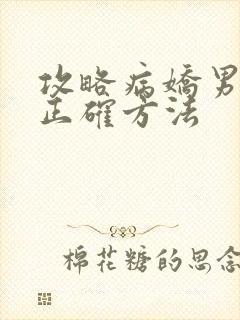 攻略病嬌男
正確方法
棉花糖的思念